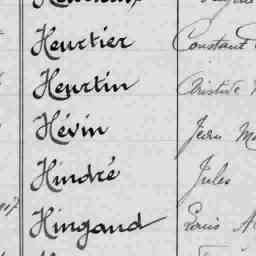 Heurtier Constant
Heurtin Aristide
Hévin Jean
Hindré Jules
Hingand Louis